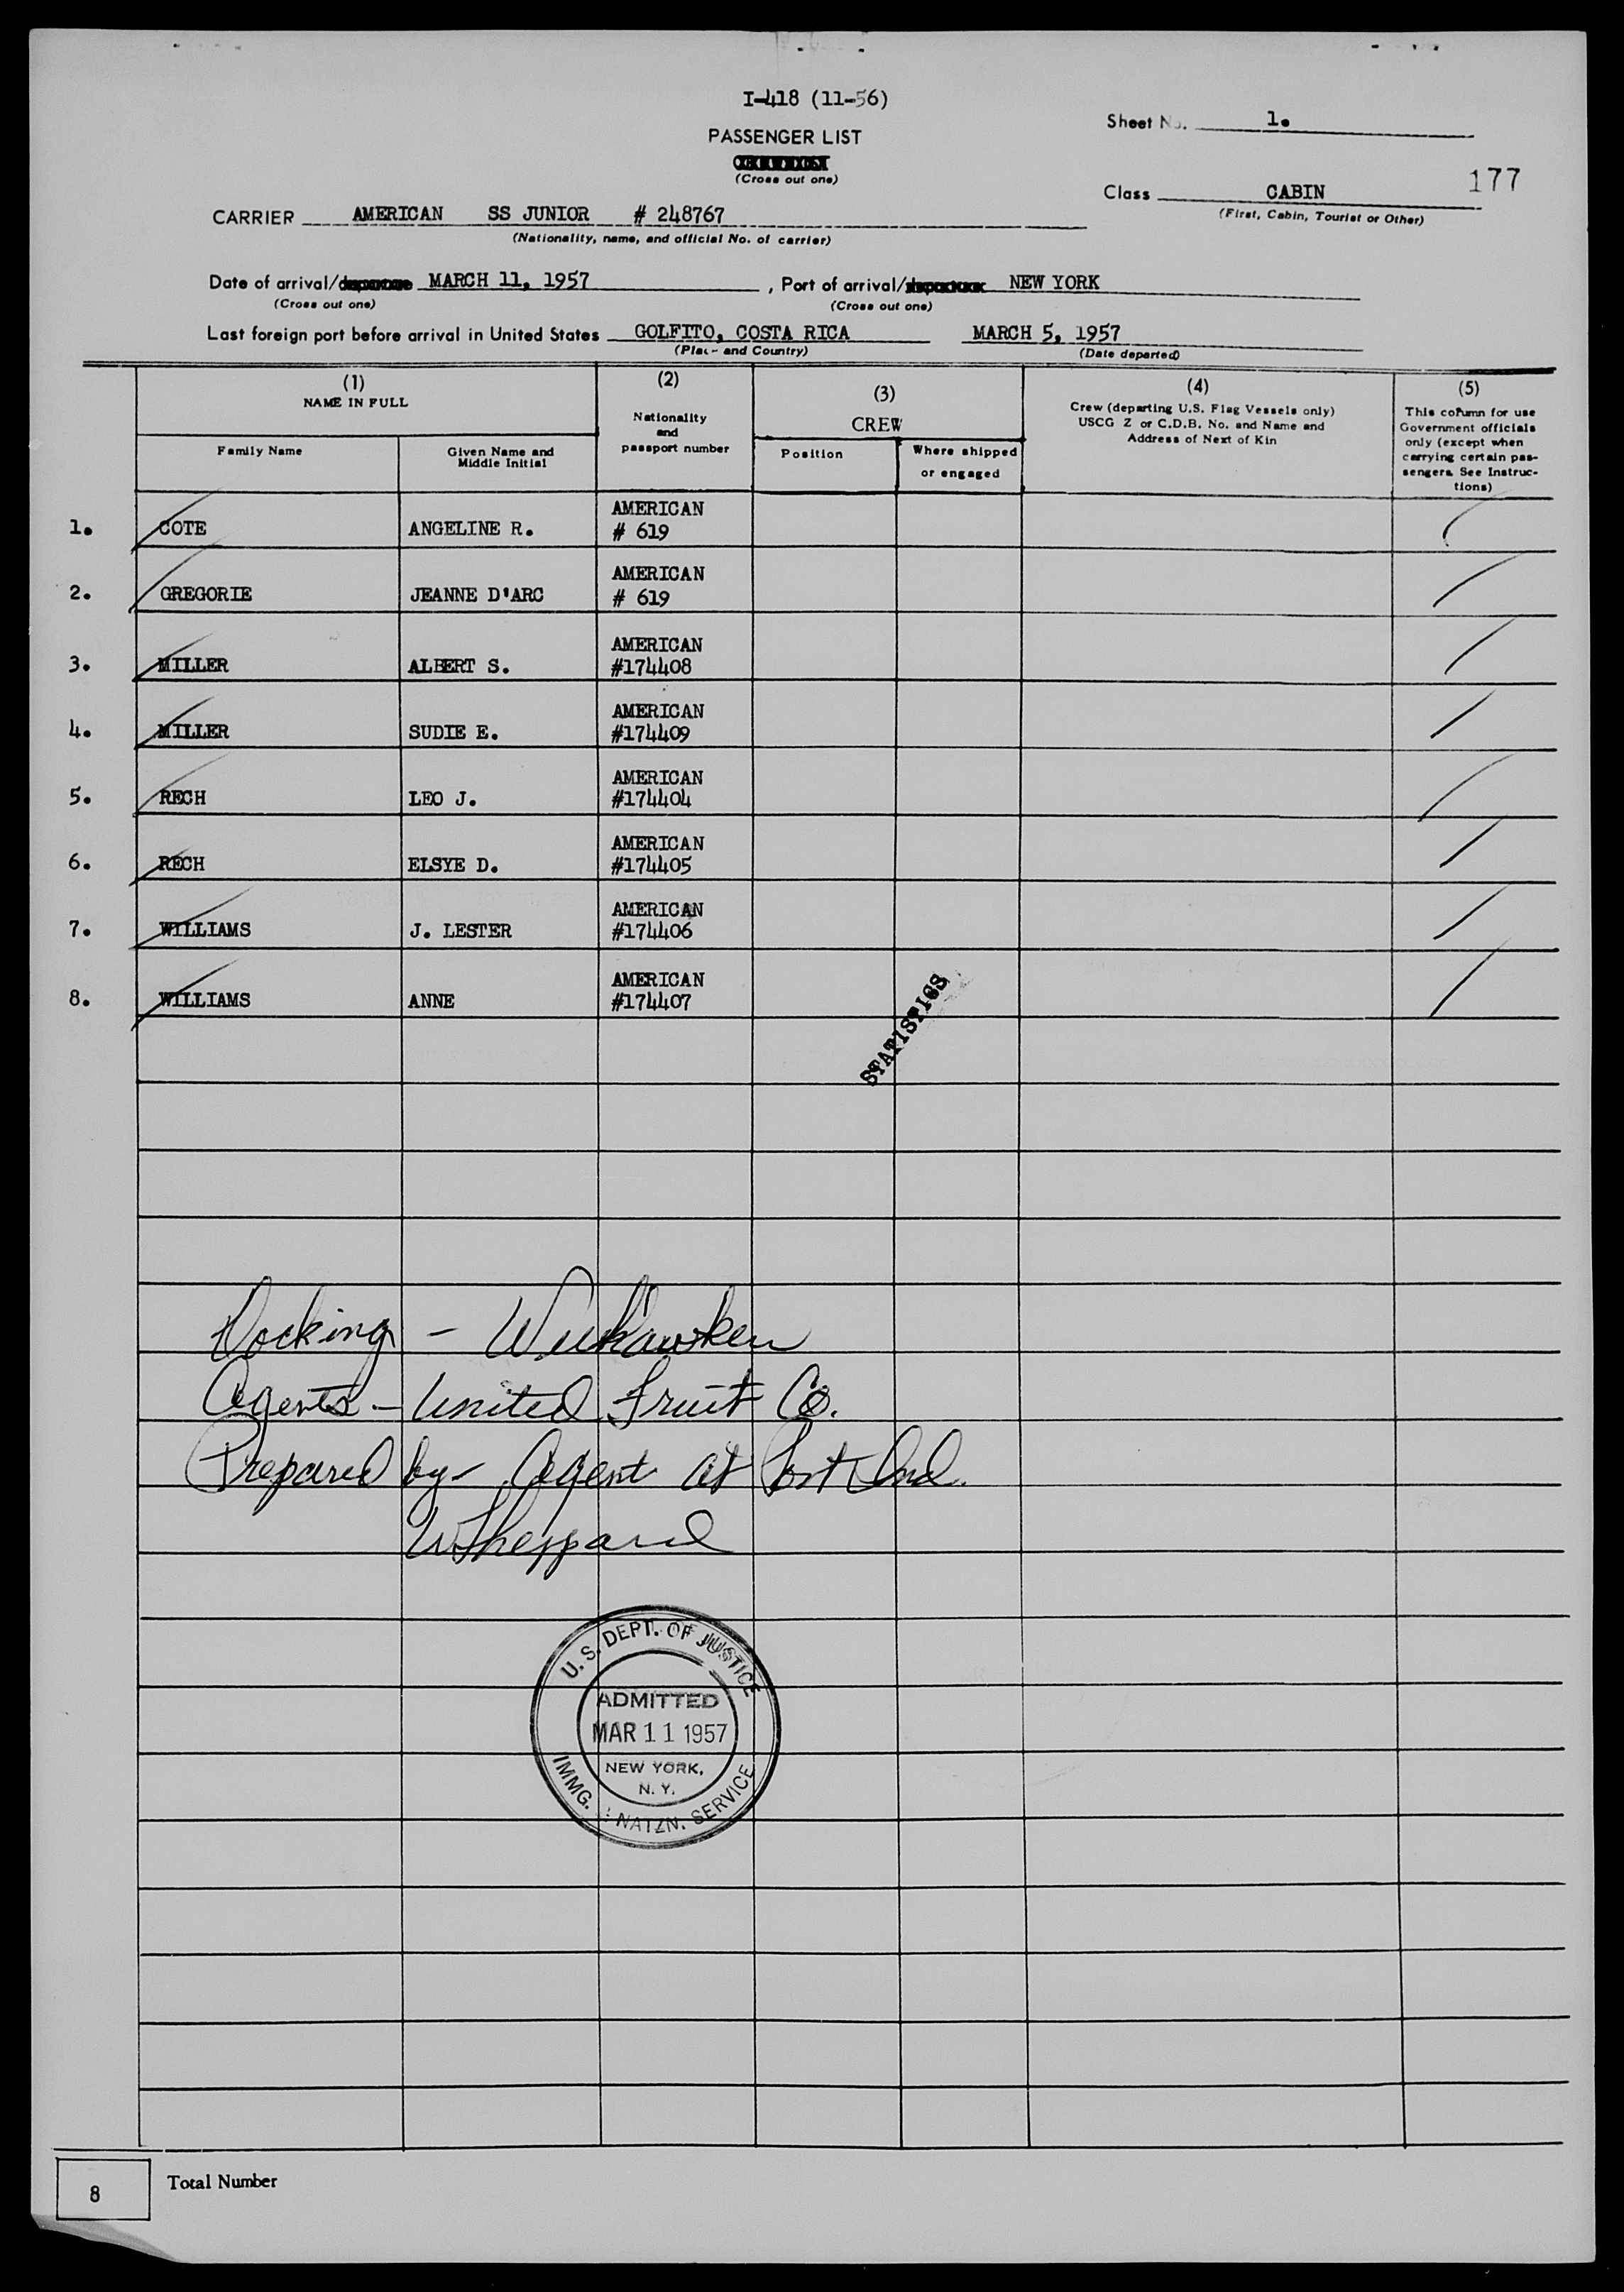 I-418 (11-56)
Sheet No. 1.
PASSENGER LIST
(Cross out one)
177
Class CABIN
(First, Cabin, Tourist or Other)
CARRIER AMERICAN SS JUNIOR # 248767
(Nationality, name, and official No. of carrier)
Date of arrival/ MARCH 11, 1957 , Port of arrival/ NEW YORK
(Cross out one) (Cross out one)
Last foreign port before arrival in United States GOLFITO, COSTA RICA MARCH 5, 1957
(Place and Country) (Date departed)
(1) (2) (3) (4) (5)
NAME IN FULL
Family Name
Given Name and
Middle Initial
Nationality
and
passport number
CREW
Position
Where shipped
or engaged
Crew (departing U.S. Flag Vessels only)
USCG Z or C.D.B. No. and Name and
Address of Next of Kin
This column for use
Government officials
only (except when
carrying certain pas-
sengers. See Instruc-
tions)
1. COTE ANGELINE R. AMERICAN
# 619
2. GREGORIE JEANNE D'ARC AMERICAN
# 619
3. MILLER ALBERT S. AMERICAN
#174408
4. MILLER SUDIE E. AMERICAN
#174409
5. RECH LEO J. AMERICAN
#174404
6. RECH ELSYE D. AMERICAN
#174405
7. WILLIAMS J. LESTER AMERICAN
#174406
8. WILLIAMS ANNE AMERICAN
#174407
STATISTICS
Docking - Weehawken
Agents - United Fruit Co.
Prepared by - Agent at Port
WSheppard
U. S. DEPT. OF JUSTICE
ADMITTED
MAR 11 1957
NEW YORK,
N. Y.
IMMG. NATZN. SERVICE
8 Total Number